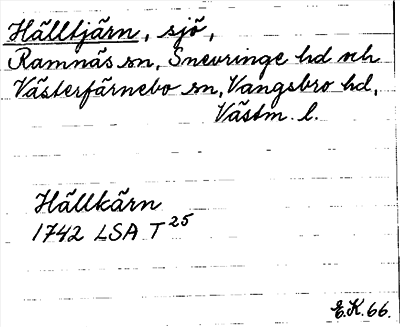 Hälltjärn, sjö,
Ramnäs sn, Snevringe hd och
Västerfärnebo sn, Vangsbro hd,
Västm. l.
Hällkärn
1742 LSA T 25
E.K. 66.